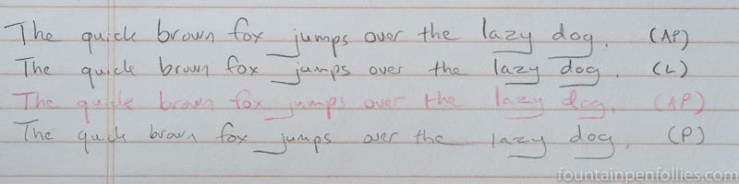 The quick brown fox jumps over the lazy dog. (AP)
The quick brown fox jumps over the lazy dog. (L)
The quick brown fox jumps over the lazy dog. (AP)
The quick brown fox jumps over the lazy dog. (P)
fountainpenfollies.com